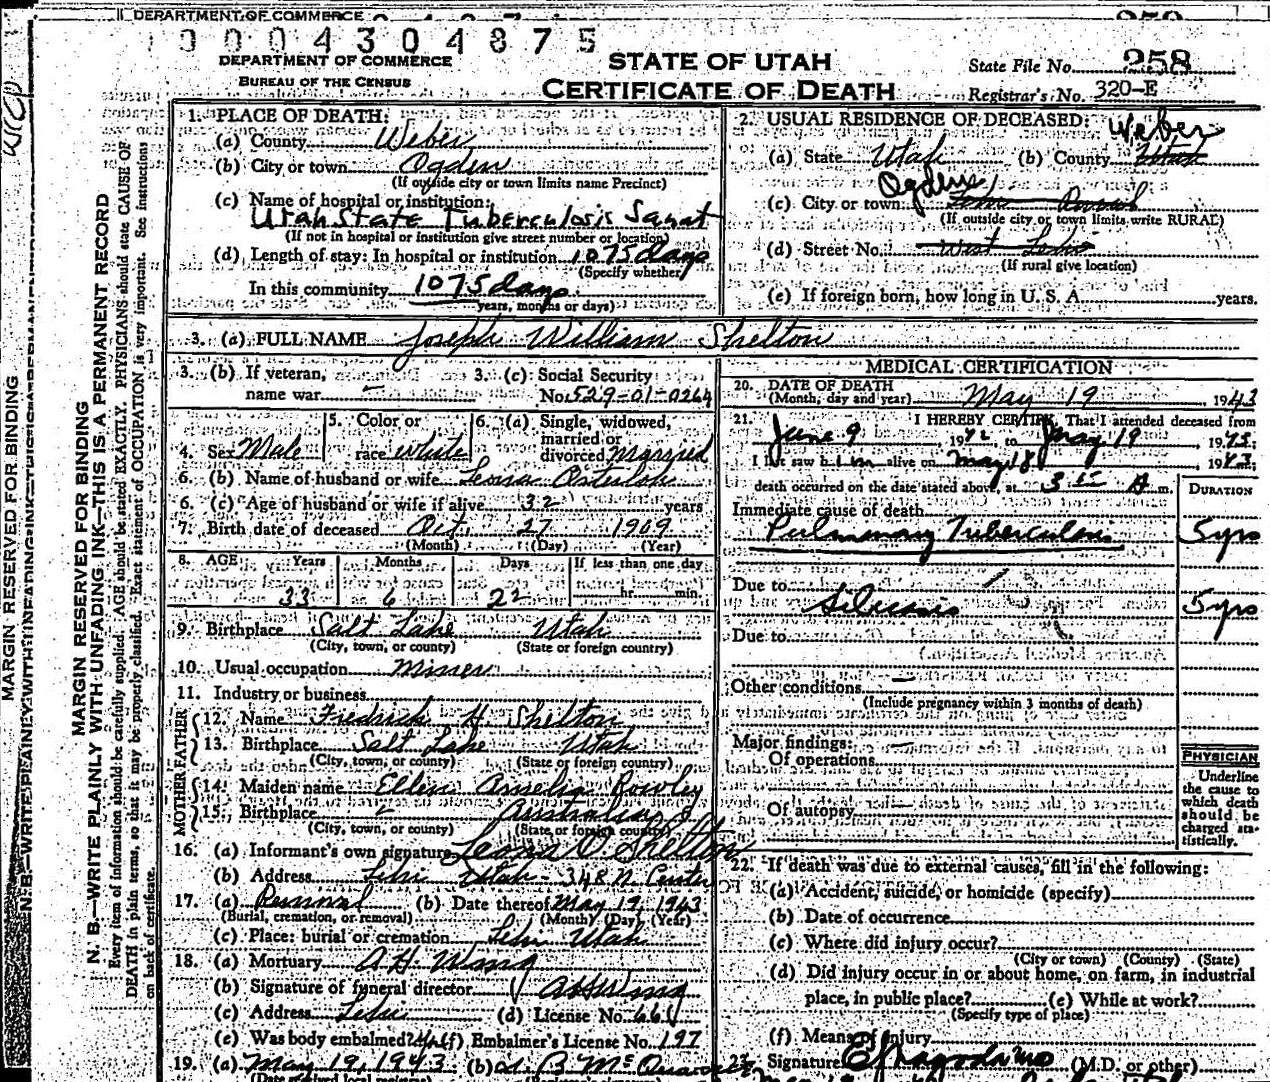 DEPARTMENT OF COMMERCE
0004304875
DEPARTMENT OF COMMERCE
BUREAU OF THE CENSUS
STATE OF UTAH
CERTIFICATE OF DEATH
State File No. 258
Registrar's No. 320-E
MARGIN RESERVED FOR BINDING
MARGIN RESERVED FOR BINDING
N. B.—WRITE PLAINLY WITH UNFADING INK—THIS IS A PERMANENT RECORD
Every item of information should be carefully supplied. AGE should be stated EXACTLY. PHYSICIANS should state CAUSE OF
DEATH in plain terms, so that it may be properly classified. Exact statement of OCCUPATION is very important. See Instructions
on back of certificate.
1. PLACE OF DEATH:
(a) County Weber
(b) City or town Ogden
(If outside city or town limits name Precinct)
(c) Name of hospital or institution:
Utah State Tuberculosis Sanat
(If not in hospital or institution give street number or location)
(d) Length of stay: In hospital or institution 1075 days
(Specify whether
In this community 1075 days
years, months or days)
2. USUAL RESIDENCE OF DECEASED:
(a) State Utah (b) County Weber Utah
(c) City or town Ogden
(If outside city or town limits write RURAL)
(d) Street No. West Lehi
(If rural give location)
(e) If foreign born, how long in U. S. A. years.
3. (a) FULL NAME Joseph William Shelton
3. (b) If veteran, name war –
3. (c) Social Security No. 529-01-0264
4. Sex Male
5. Color or race White
6. (a) Single, widowed, married or divorced Married
6. (b) Name of husband or wife Leona Osterloh
6. (c) Age of husband or wife if alive 32 years
7. Birth date of deceased Oct. 27 1909
(Month) (Day) (Year)
8. AGE Years Months Days If less than one day
33 6 22 hr. min.
9. Birthplace Salt Lake Utah
(City, town, or county) (State or foreign country)
10. Usual occupation Miner
11. Industry or business
FATHER
12. Name Fredrick H Shelton
13. Birthplace Salt Lake Utah
(City, town, or county) (State or foreign country)
MOTHER
14. Maiden name Ellen Amelia Rowley
15. Birthplace – Australia
(City, town, or county) (State or foreign country)
16. (a) Informant's own signature Leona O. Shelton
(b) Address Lehi Utah - 348 N. Center
17. (a) Removal (b) Date thereof May 19, 1943
(Burial, cremation, or removal) (Month) (Day) (Year)
(c) Place: burial or cremation Lehi Utah
18. (a) Mortuary A. H. Wing
(b) Signature of funeral director
(c) Address Lehi (d) License No.
(e) Was body embalmed? (f) Embalmer's License No. 197
19. (a) May 19, 1943 (b)
MEDICAL CERTIFICATION
20. DATE OF DEATH
(Month, day and year) May 19, 1943
21. I HEREBY CERTIFY, That I attended deceased from
June 9, 1942 to May 19, 1943;
I last saw him alive on May 18, 1943;
death occurred on the date stated above, at 3 A m.
DURATION
Immediate cause of death
Pulmonary Tuberculosis 5 yrs
Due to
Silicosis 5 yrs
Due to
Other conditions –
(Include pregnancy within 3 months of death)
Major findings: –
Of operations
Of autopsy
PHYSICIAN
Underline
the cause to
which death
should be
charged sta-
tistically.
22. If death was due to external causes, fill in the following:
(a) Accident, suicide, or homicide (specify)
(b) Date of occurrence
(c) Where did injury occur?
(City or town) (County) (State)
(d) Did injury occur in or about home, on farm, in industrial
place, in public place? (e) While at work?
(Specify type of place)
(f) Means of injury
23. Signature (M.D. or other)